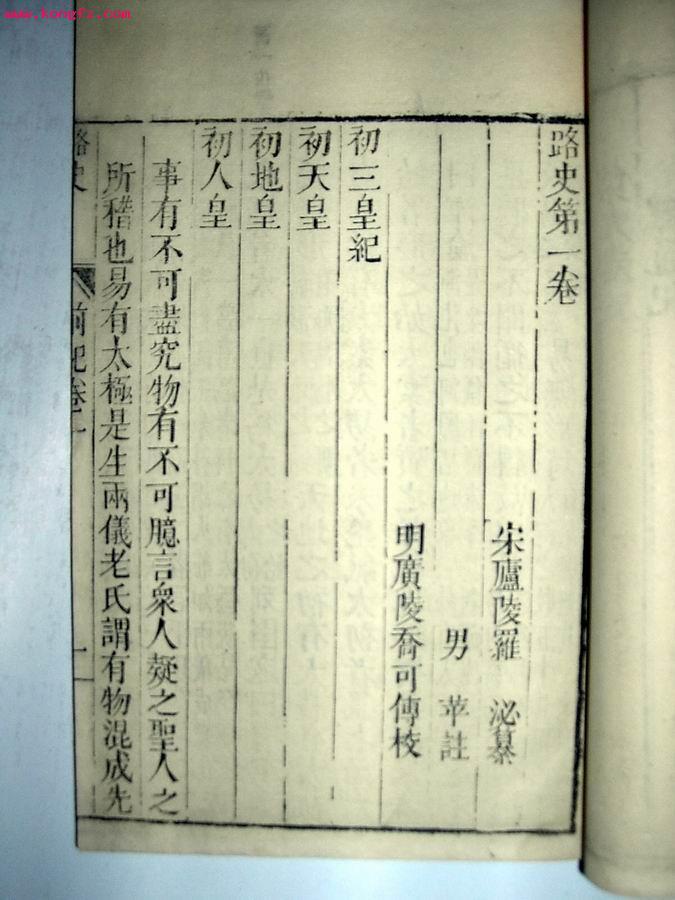 www.kongfz.com
路史第一卷
宋廬陵羅　泌纂
男　苹註
明廣陵喬可傳校
初三皇紀
初天皇
初地皇
初人皇
事有不可盡究物有不可臆言衆人疑之聖人之
所稽也易有太極是生兩儀老氏謂有物混成先
路史　前紀卷一　一